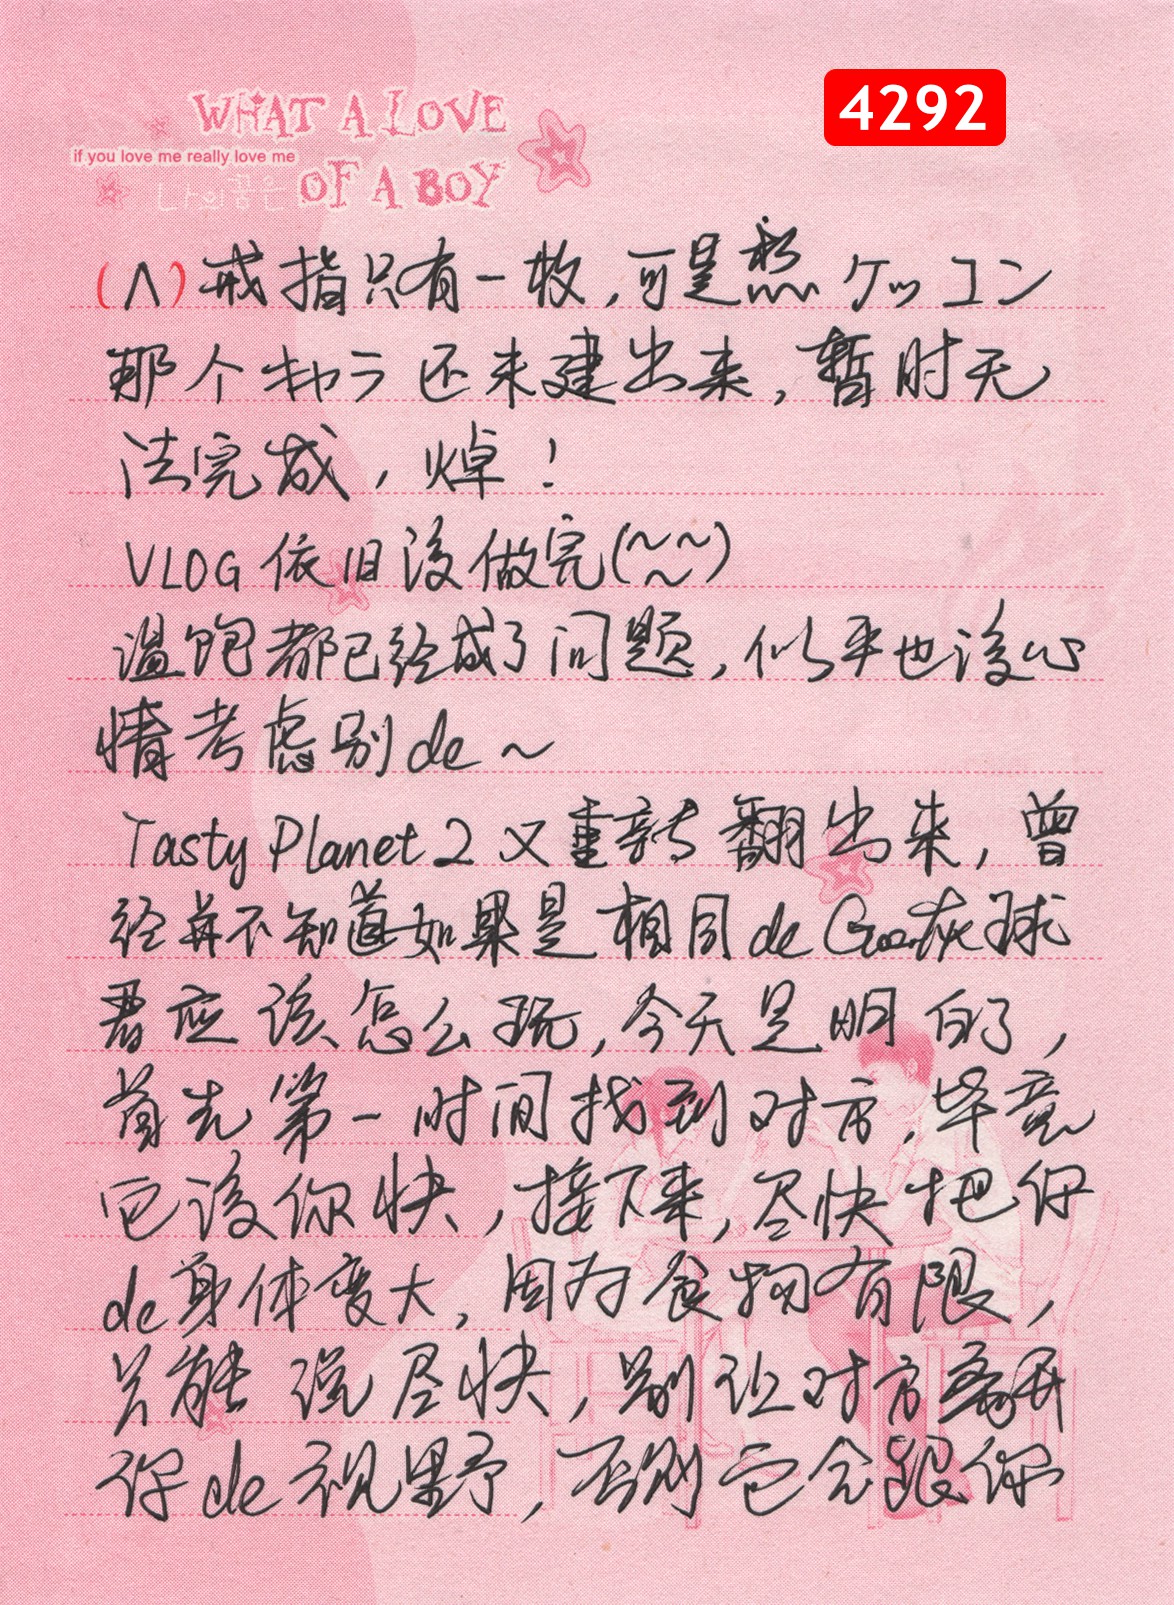 4292
WHAT A LOVE
if you love me really love me
나의꿈은 OF A BOY
(八)戒指只有一枚,可是愁ケッコン
那个キャラ还未建出来,暂时无
法完成,焯!
VLOG 依旧没做完(~~~)
温饱都已经成了问题,似乎也没心
情考虑别de~
Tasty Planet 2 又重新翻出来,曾
经并不知道如果是相同de Goo灰球
君应该怎么玩,今天是明白了,
首先第一时间找到对方,毕竟
它没你快,接下来,尽快把你
de身体变大,因为食物有限,
只能说尽快,别让对方离开
你de视野,否则它会跟你